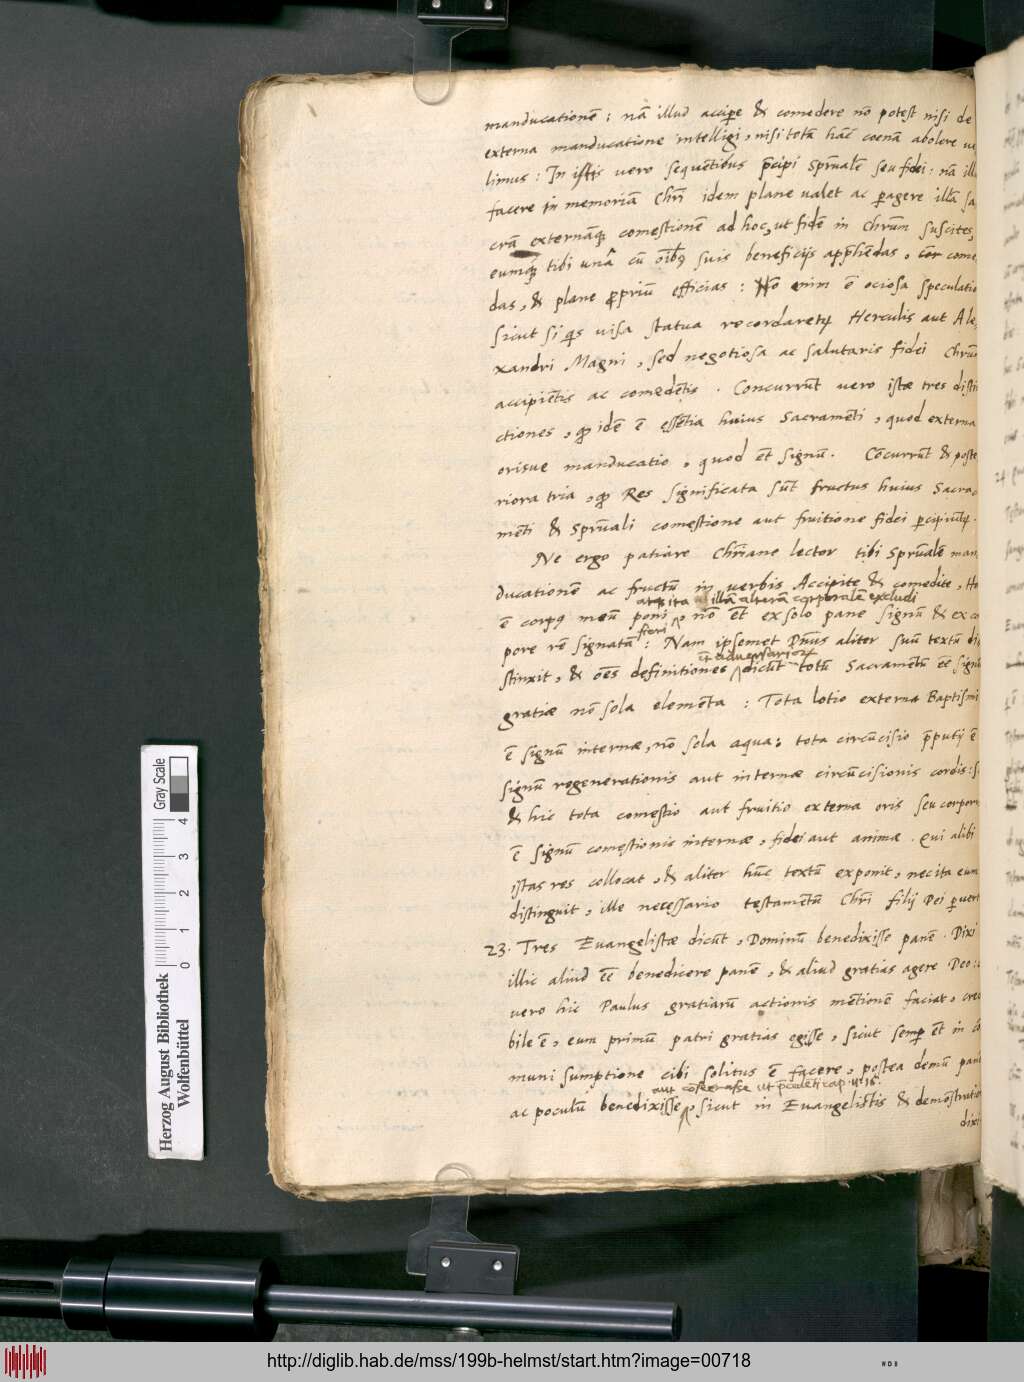 manducationē: nā illud accipe & comedere nō potest nisi de
externa manducatione intelligi, nisi totā hāc coenā abolere ue
limus: In istis vero sequentibus p̄cipi sprualē seu fidei: nā illu
facere in memoriā Chri idem plane ualet ac p̄agere illā sa
crā externāq; comestionē ad hoc, ut fidē in Chrūm suscites,
eumq; tibi unā cū oībq suis beneficijs appr̄hēdas, cor come
das, & plane propriū efficias: Nō enim ē ociosa speculatio
sicut si qs uisa statua recordaretur Herculis aut Ale,
xandri Magni, sed negotiosa ac salutaris fidei Chrūm
accipiētis ac comedētis. Concurrūt vero istæ tres disti
ctiones, qp idē ē essētia huius Sacramēti, quod externa
orisue manducatio, quod ēt signū. Cōcurrūt & poste
riora tria, qp Res significata sūt fructus huius Sacra
mēti & sprūali comestione aut fruitione fidei p̄cipiūtur.
Ne ergo patiare Christiane lector tibi sprūalē man,
ducationē ac fructū in uerbis Accipite & comedite, Ho
atq; ita illā alterā corporalē excludi
ē corpq meū poni, nō ēt ex solo pane signū & ex co
fieri
pore rē signatā: Nam ipsemet Dn̄us aliter suū textū di
ēt aduersarior
stinxit, & oēs definitiones dicūt totū Sacramētū eē signū
gratiæ nō sola elementa: Tota lotio externa Baptismi
ē signū internæ, nō sola aqua: tota circūcisio p̄putij ē
signū regenerationis aut internæ circūcisionis cordis: s
& hic tota comestio aut fruitio externa oris seu corpori
ē signū comestionis internæ, fidei aut animæ. Qui alibi
istas res collocat, & aliter hūc textū exponit, nec ita eum
distinguit, ille necessario testamētū Chri filij Dei p̄uert
23. Tres Euangelistæ dicūt, Dominū benedixisse panē. Dixi
illic aliud eē benedicere panē, & aliud gratias agere Deo:
vero hic Paulus gratiarū actionis mētionē faciat, cred
bile ē, eum primū patri gratias egisse, sicut semp ēt in cō
muni sumptione cibi solitus ē facere, postea demū panē
aut cōsecrasse ut p̄cedēti cap. nr 16.
ac poculū benedixisse, sicut in Euangelistis & demōstratio
dixi
Herzog August Bibliothek
Wolfenbüttel
0 1 2 3 4
Gray Scale
http://diglib.hab.de/mss/199b-helmst/start.htm?image=00718
WDB